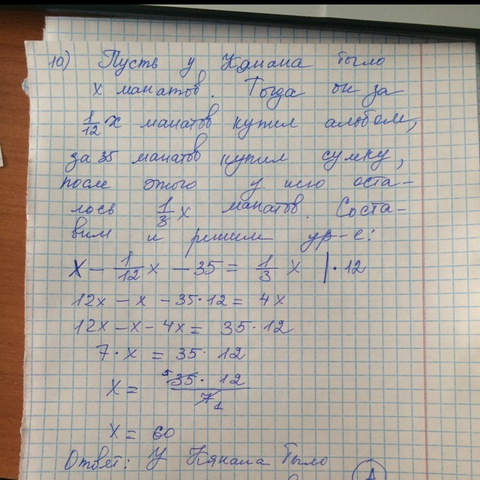 10) Пусть у Кянана было
x манатов. Тогда он за
1/12 x манатов купил альбом,
за 35 манатов купил сумку,
после этого у него оста-
лось 1/3 x манатов. Соста-
вим и решим ур-е:
x - 1/12 x - 35 = 1/3 x | · 12
12x - x - 35 · 12 = 4x
12x - x - 4x = 35 · 12
7 · x = 35 · 12
x = 5 35 · 12 / 7 1
x = 60
Ответ: У Кянана было
A